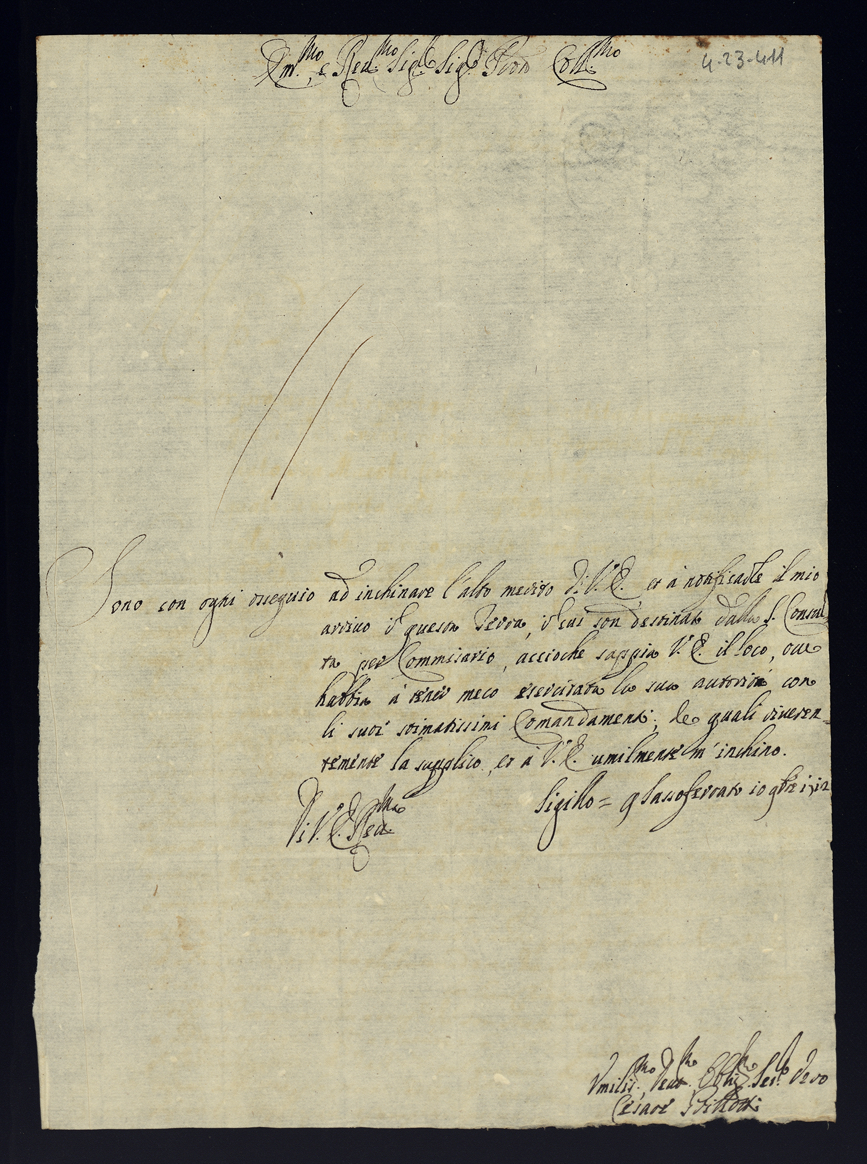 Em.mo, e Reu.mo Sig.e Sig.e Pron Coll.mo
4-23-411
Sono con ogni ossequio ad inchinare l'alto merito di V.E. et à notificarle il mio
arriuo questa Terra, cui son destinato dalla S. Consul
ta per Commissario, accioche sappia V.E. il loco, oue
habbia à tener meco esercitata la sua autorità con
li suoi stimatissimi Comandamenti, de quali riueren
temente la supplico, et à V.E. umilmente m'inchino.
Di V.E. Reu.ma
Sassoferrato 10
Vmiliss.mo Deu.mo Obli.mo Ser.e Vero
Cesare